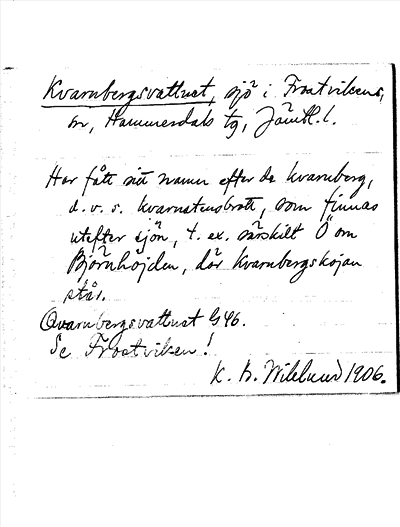 Kvarnbergsvattnet, sjö i Frostvikens
sn, Hammerdals tg, Jämtl. l.
Har fått sitt namn efter de kvarnberg,
d. v. s. kvarnstensbrott, som finnas
utefter sjön, t. ex. särskilt Ö om
Björnhöjden, där Kvarnbergskojan
står.
Qvarnbergsvattnet G 46.
Se Frostviken!
K. B. Wiklund 1906.